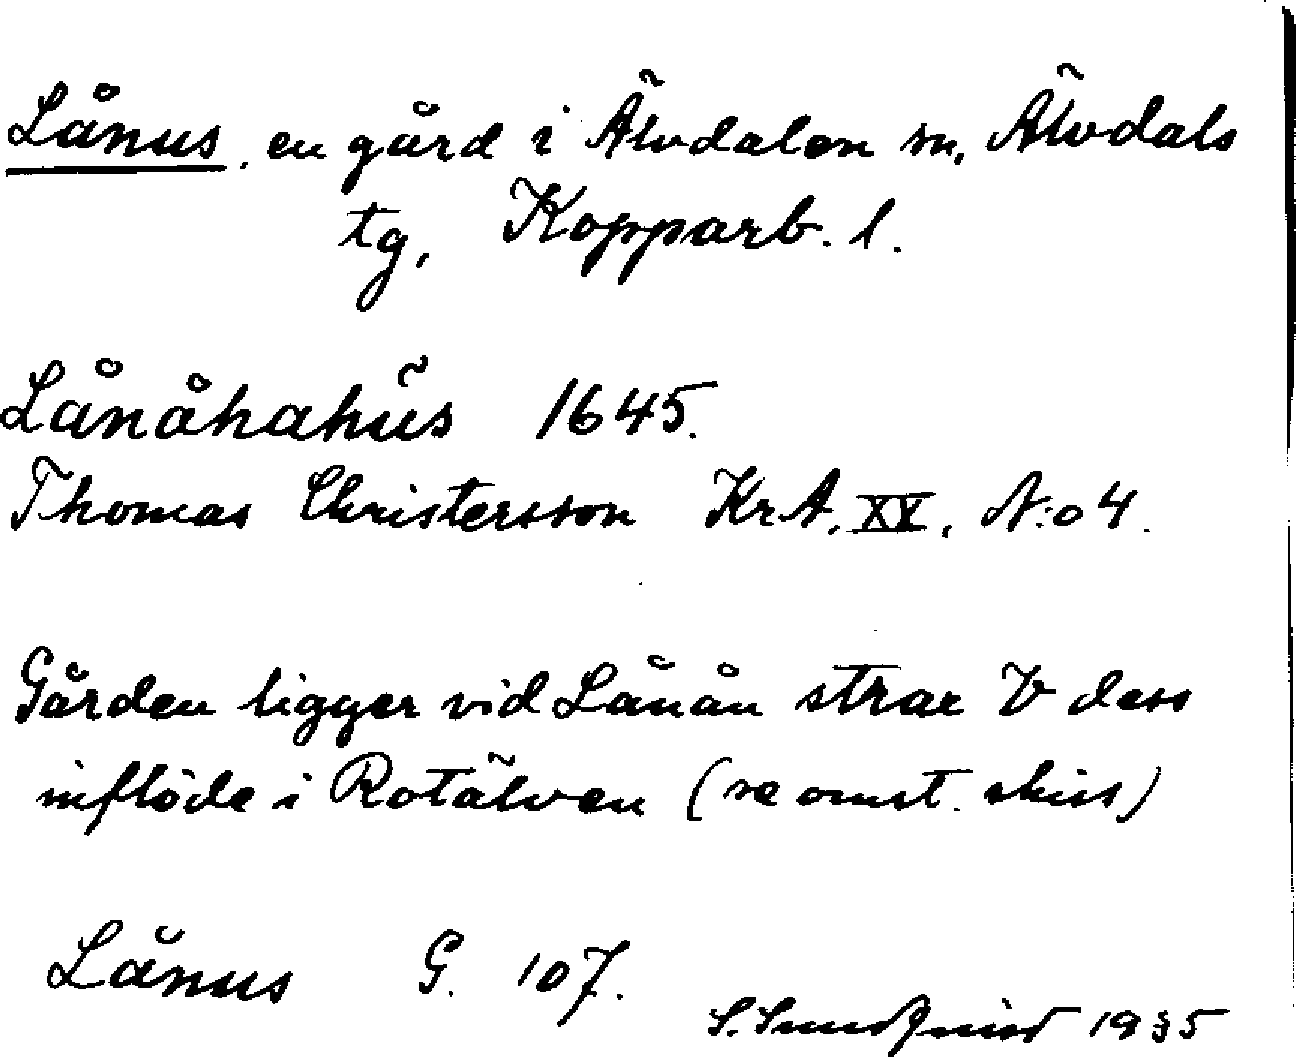 Lånus, en gård i Älvdalen sn, Älvdals
tg, Kopparb. l.
Lånåhahus 1645.
Thomas Christersson KrA. XV, N:o 4.
Gården ligger vid Lånån strax V dess
inflöde i Rotälven (se omst. skiss)
Lånus G. 107.
S. 1935